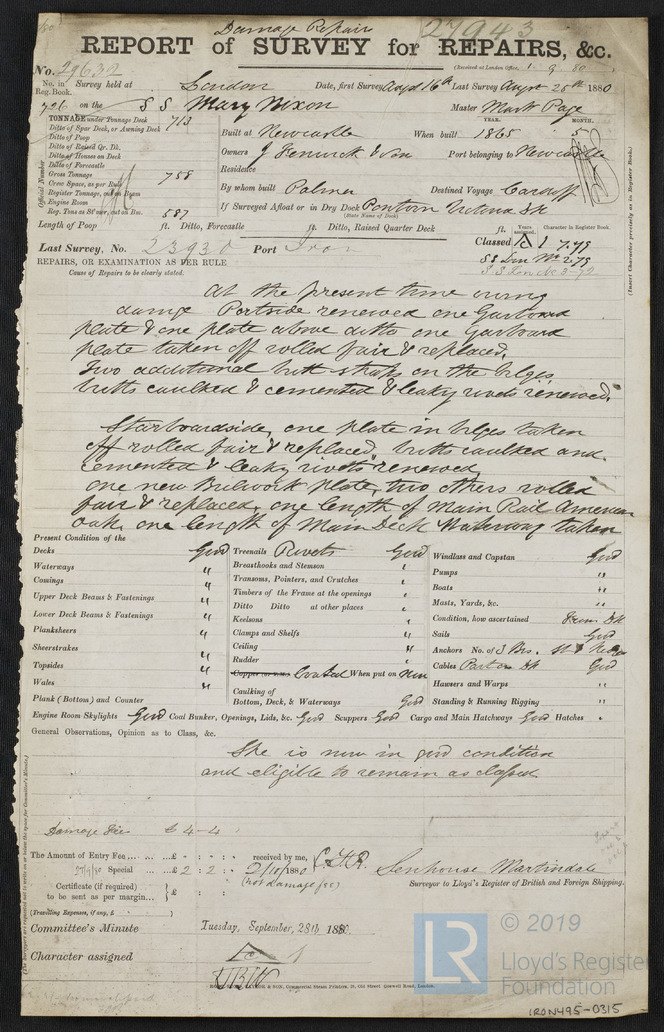 Damage Repairs
27943
REPORT of SURVEY for REPAIRS, &c.
(Received at London Office, 1. 9. 80 )
No. 29632
No. in Reg. Book. Survey held at London Date, first Survey Augst 16th Last Survey Augst 25th 1880
726 on the S S Mary Nixon Master Mark Page
TONNAGE under Tonnage Deck 713
Ditto of Spar Deck, or Awning Deck
Ditto of Poop
Ditto of Raised Qr. Dk.
Ditto of Houses on Deck
Ditto of Forecastle
Gross Tonnage 758
Crew Space, as per Rule
Register Tonnage, cut on Beam
Engine Room
Reg. Tons as St'mer, cut on Bm. 587
Official Number
YEAR. MONTH.
Built at Newcastle When built 1865 5
Owners J Fenwick & Son Port belonging to Newcastle
Residence
By whom built Palmer Destined Voyage Cardiff
If Surveyed Afloat or in Dry Dock Pontoon Victoria Dk
(State Name of Dock)
Length of Poop ft. Ditto, Forecastle ft. Ditto, Raised Quarter Deck ft.
Years assigned. Character in Register Book
Last Survey, No. 23930 Port Iron
Classed A 1 7.79
SS Lon No 2-79
S S Lon No 3-72
(Insert Character precisely as in Register Book.)
REPAIRS, OR EXAMINATION AS PER RULE
Cause of Repairs to be clearly stated.
At the present time owing
damage Portside renewed one Garboard
plate & one plate above ditto one Garboard
plate taken off rolled fair & replaced,
Two additional butt straps on the bilges
butts caulked & cemented & leaky rivets renewed.
Starboardside, one plate in bilges taken
off rolled fair & replaced, butts caulked and
cemented & leaky rivets renewed,
one new Bulwark plate, two others rolled
fair & replaced, one length of Main Rail American
oak, one length of Main Deck Waterway taken
Present Condition of the
Decks Good
Waterways "
Comings "
Upper Deck Beams & Fastenings "
Lower Deck Beams & Fastenings "
Planksheers "
Sheerstrakes "
Topsides "
Wales "
Plank (Bottom) and Counter
Treenails Rivets Good
Breasthooks and Stemson "
Transoms, Pointers, and Crutches "
Timbers of the Frame at the openings "
Ditto Ditto at other places "
Keelsons "
Clamps and Shelfs "
Ceiling "
Rudder "
Coated When put on Now
Caulking of
Bottom, Deck, & Waterways Good
Windlass and Capstan Good
Pumps "
Boats "
Masts, Yards, &c. "
Condition, how ascertained From Dk
Sails Good
Anchors No. of 3 Brs.
Cables Part on Dk Good
Hawsers and Warps "
Standing & Running Rigging "
Engine Room Skylights Good Coal Bunker, Openings, Lids, &c. Good Scuppers Good Cargo and Main Hatchways Good Hatches "
General Observations, Opinion as to Class, &c.
She is now in good condition
and eligible to remain as classed
Damage Fee £4-4
The Amount of Entry Fee ... £ : :
27/9/80 Special ... £ 2 : 2 :
received by me,
2/10/1880
(not damage fee)
Certificate (if required) to be sent as per margin... £ : :
(Travelling Expenses, if any, £ )
Senhouse Martindale
Surveyor to Lloyd's Register of British and Foreign Shipping.
Committee's Minute Tuesday, September, 28th 1880.
Character assigned A 1
© 2019
LR
Lloyd's Register
Foundation
IRON495-0315